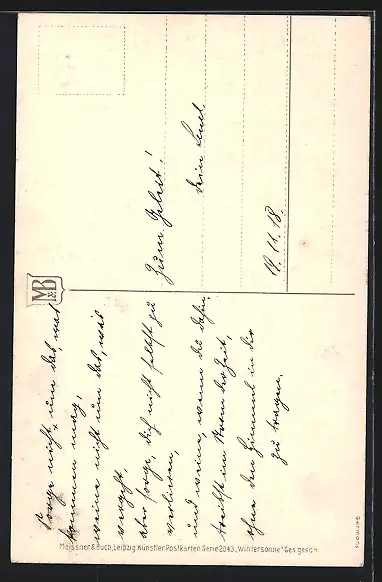 Sorge nicht um das, was
kommen mag,
weine nicht um das, was
vergeht,
aber sorge, dich nicht selbst zu
verlieren,
und weine, wenn du dahin
treibst im Strom der Zeit,
ohne den Himmel in dir
zu tragen.
Zum Geleit!
Dein
19.11.18.
M&B
Meissner & Buch, Leipzig. Künstler-Postkarten Serie 2043. „Wintersonne“ Ges. gesch.
Germany